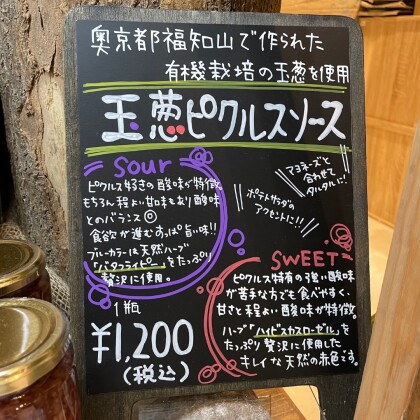 奥京都福知山で作られた
有機栽培の玉葱を使用
玉葱ピクルスソース
Sour
ピクルス好きの酸味が特徴。
もちろん程よい甘味もあり酸味
とのバランス◎
食欲が進むすっぱ旨い!!
ブルーカラーは天然ハーブ
「バタフライピー」をたっぷり
贅沢に使用。
マヨネーズと
合わせて
タルタルに!
ポテトサラダの
アクセントに!!
SWEET
ピクルス特有の強い酸味
が苦手な方でも食べやすく、
甘さと程よい酸味が特徴。
ハーブ「ハイビスカスローゼル」を
たっぷり贅沢に使用した
キレイな天然の赤色です。
1瓶
¥1,200
(税込)